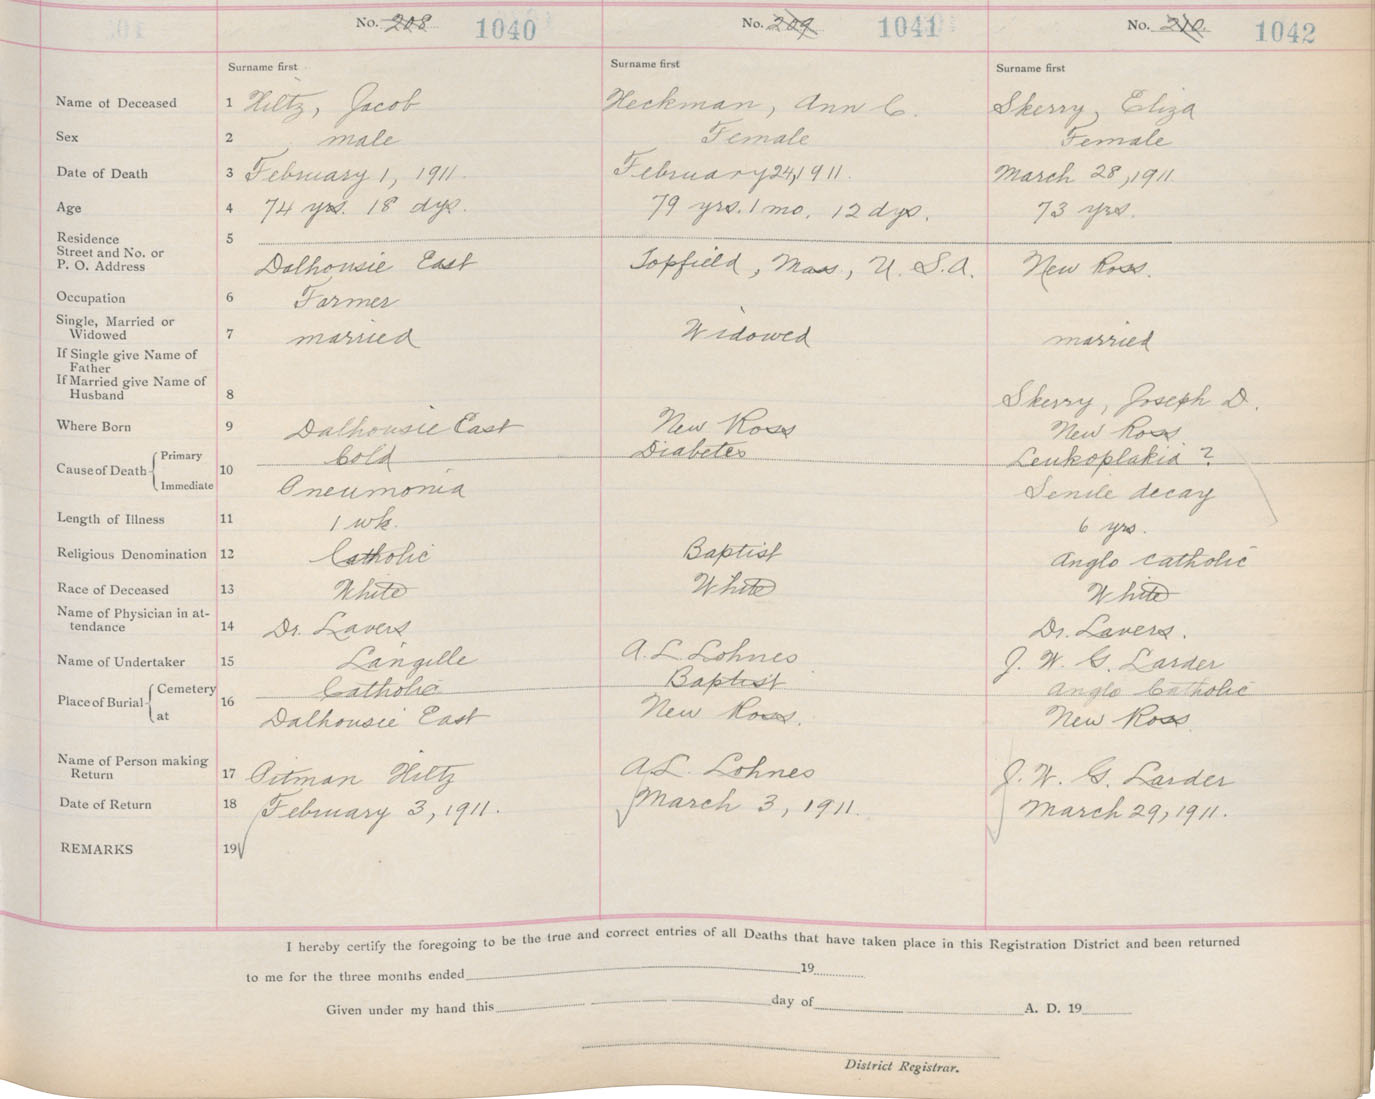 No. 208 1040 No. 209 1041 No. 210. 1042
Surname first Surname first Surname first
Name of Deceased 1 Hiltz, Jacob Heckman, Ann C. Skerry, Eliza
Sex 2 male Female Female
Date of Death 3 February 1, 1911. February 24, 1911. March 28, 1911
Age 4 74 yrs. 18 dys. 79 yrs. 1 mo. 12 dys. 73 yrs.
Residence 5
Street and No. or
P. O. Address Dalhousie East Topfield, Mass, U. S. A. New Ross.
Occupation 6 Farmer
Single, Married or
Widowed 7 married Widowed married
If Single give Name of
Father
If Married give Name of
Husband 8 Skerry, Joseph D.
Where Born 9 Dalhousie East New Ross New Ross
Cause of Death Primary 10 Cold Diabetes Leukoplakia ?
Immediate Pneumonia Senile decay
Length of Illness 11 1 wk. 6 yrs.
Religious Denomination 12 Catholic Baptist Anglo Catholic
Race of Deceased 13 White White White
Name of Physician in at-
tendance 14 Dr. Lavers Dr. Lavers.
Name of Undertaker 15 Langille A. L. Lohnes J. W. G. Larder
Place of Burial Cemetery 16 Catholic Baptist Anglo Catholic
at Dalhousie East New Ross. New Ross
Name of Person making
Return 17 Pitman Hiltz A. L. Lohnes J. W. G. Larder
Date of Return 18 February 3, 1911. March 3, 1911. March 29, 1911.
REMARKS 19
I hereby certify the foregoing to be the true and correct entries of all Deaths that have taken place in this Registration District and been returned
to me for the three months ended 19
Given under my hand this day of A. D. 19
District Registrar.